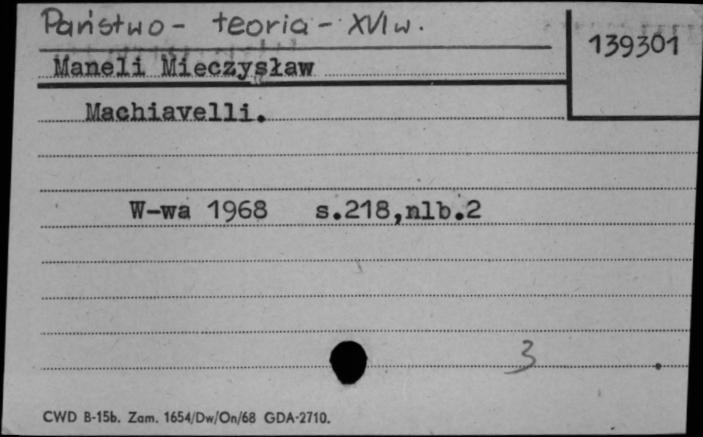 Państwo - teoria - XVI w.
139301
Maneli Mieczysław
Machiavelli.
W-wa 1968 s.218,nlb.2
3
CWD B-15b. Zam. 1654/Dw/On/68 GDA-2710.